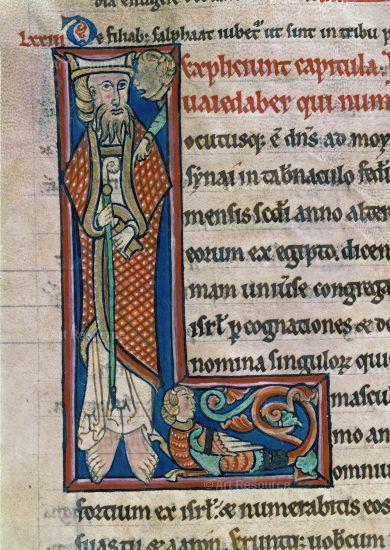 LXXIII De filiab: salphaat iubet ut sint in tribu p
Expliciunt capitula:
uaiedaber qui num
Locutusq; ē dn̄s ad moy
synai in tab̄naculo fed
mensis scdi anno alte
eorum ex egipto. dicen
mam uniūse congrega
isrl̄ p cognationes & do
nomina singuloꝝ qui
mascul
mo an
omniu
fortium ex isrl̄: & numerabitis eos
& aaron.
© Art Resource